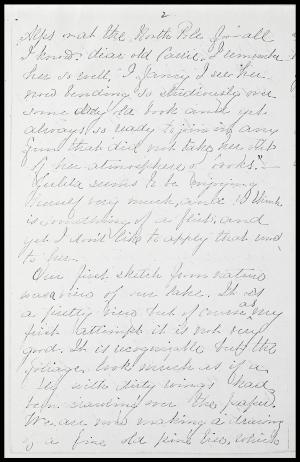 2
Alps or at the North Pole for all
I know. dear old Cassie. I remember
her so well. I fancy I see her
now bending so studiously over
some old book and yet
always so ready to join in any
fun that did not take her out
of her atmosphere of "books."
seems to be enjoying
herself very much, and I think
is something of a flirt, and
yet I don't like to apply that word
to her.
Our first sketch from nature
was a view of our lake. It is
a pretty view but of course as my
first attempt it is not very
good. It is recognizable but the
foliage looks much as if a
fly with dirty wings had
been crawling over the paper.
We are now making a drawing
of a fine old pine tree, which